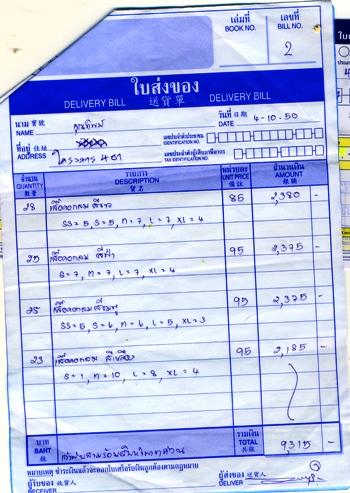 เล่มที่ เลขที่
BOOK NO. BILL NO.
2
ใบส่งของ
DELIVERY BILL 送貨單 DELIVERY BILL
นาม 寶號
NAME คุณทิพย์
วันที่ 日期
DATE 4-10-50
ที่อยู่ 住址
ADDRESS โครงการ 401
เลขประจำตัวประชาชน
IDENTIFICATION NO.
เลขประจำตัวผู้เสียภาษีอากร
TAX IDENTIFICATION NO.
จำนวน รายการ หน่วยละ จำนวนเงิน
QUANTITY DESCRIPTION UNIT PRICE AMOUNT
數量 貨名 價銀 銀額
28 เสื้อคอกลม สีขาว 85 2,380 -
SS=5, S=5, M=7, L=7, XL=4
25 เสื้อคอกลม สีฟ้า 95 2,375 -
S=7, M=7, L=7, XL=4
25 เสื้อคอกลม สีชมพู 95 2,375 -
SS=5, S=6, M=6, L=5, XL=3
23 เสื้อคอกลม สีเหลือง 95 2,185 -
S=1, M=10, L=8, XL=4
บาท รวมเงิน
BAHT เก้าพันสามร้อยสิบห้าบาทถ้วน TOTAL 9315 -
หมายเหตุ ชำระเงินแล้วจะออกใบเสร็จรับเงินถูกต้องตามกฎหมาย
ผู้รับของ 收貨人 ผู้ส่งของ 送貨人
RECEIVER DELIVER